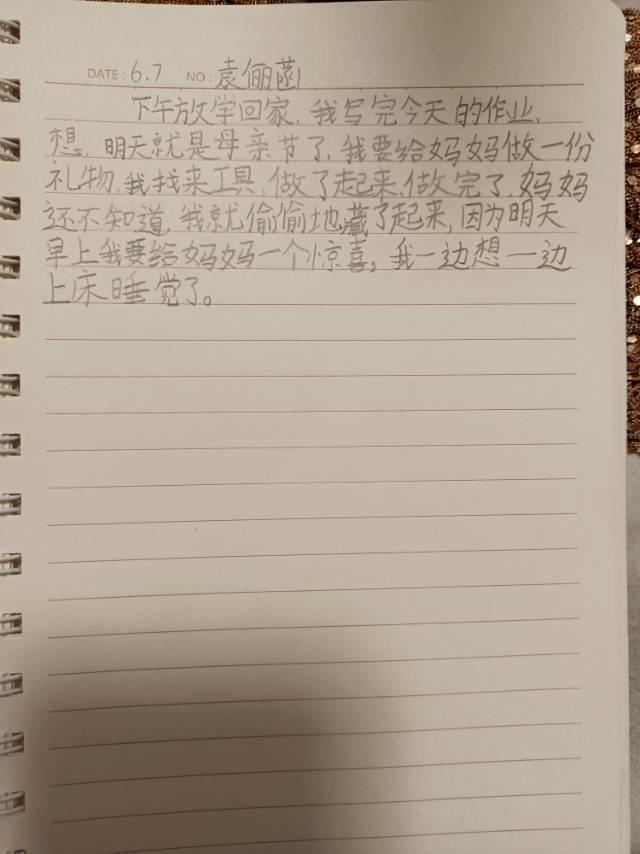 DATE: 6.7 NO: 袁俪菡
下午放学回家,我写完今天的作业,
想,明天就是母亲节了,我要给妈妈做一份
礼物,我找来工具,做了起来,做完了,妈妈
还不知道,我就偷偷地藏了起来,因为明天
早上我要给妈妈一个惊喜,我一边想一边
上床睡觉了。